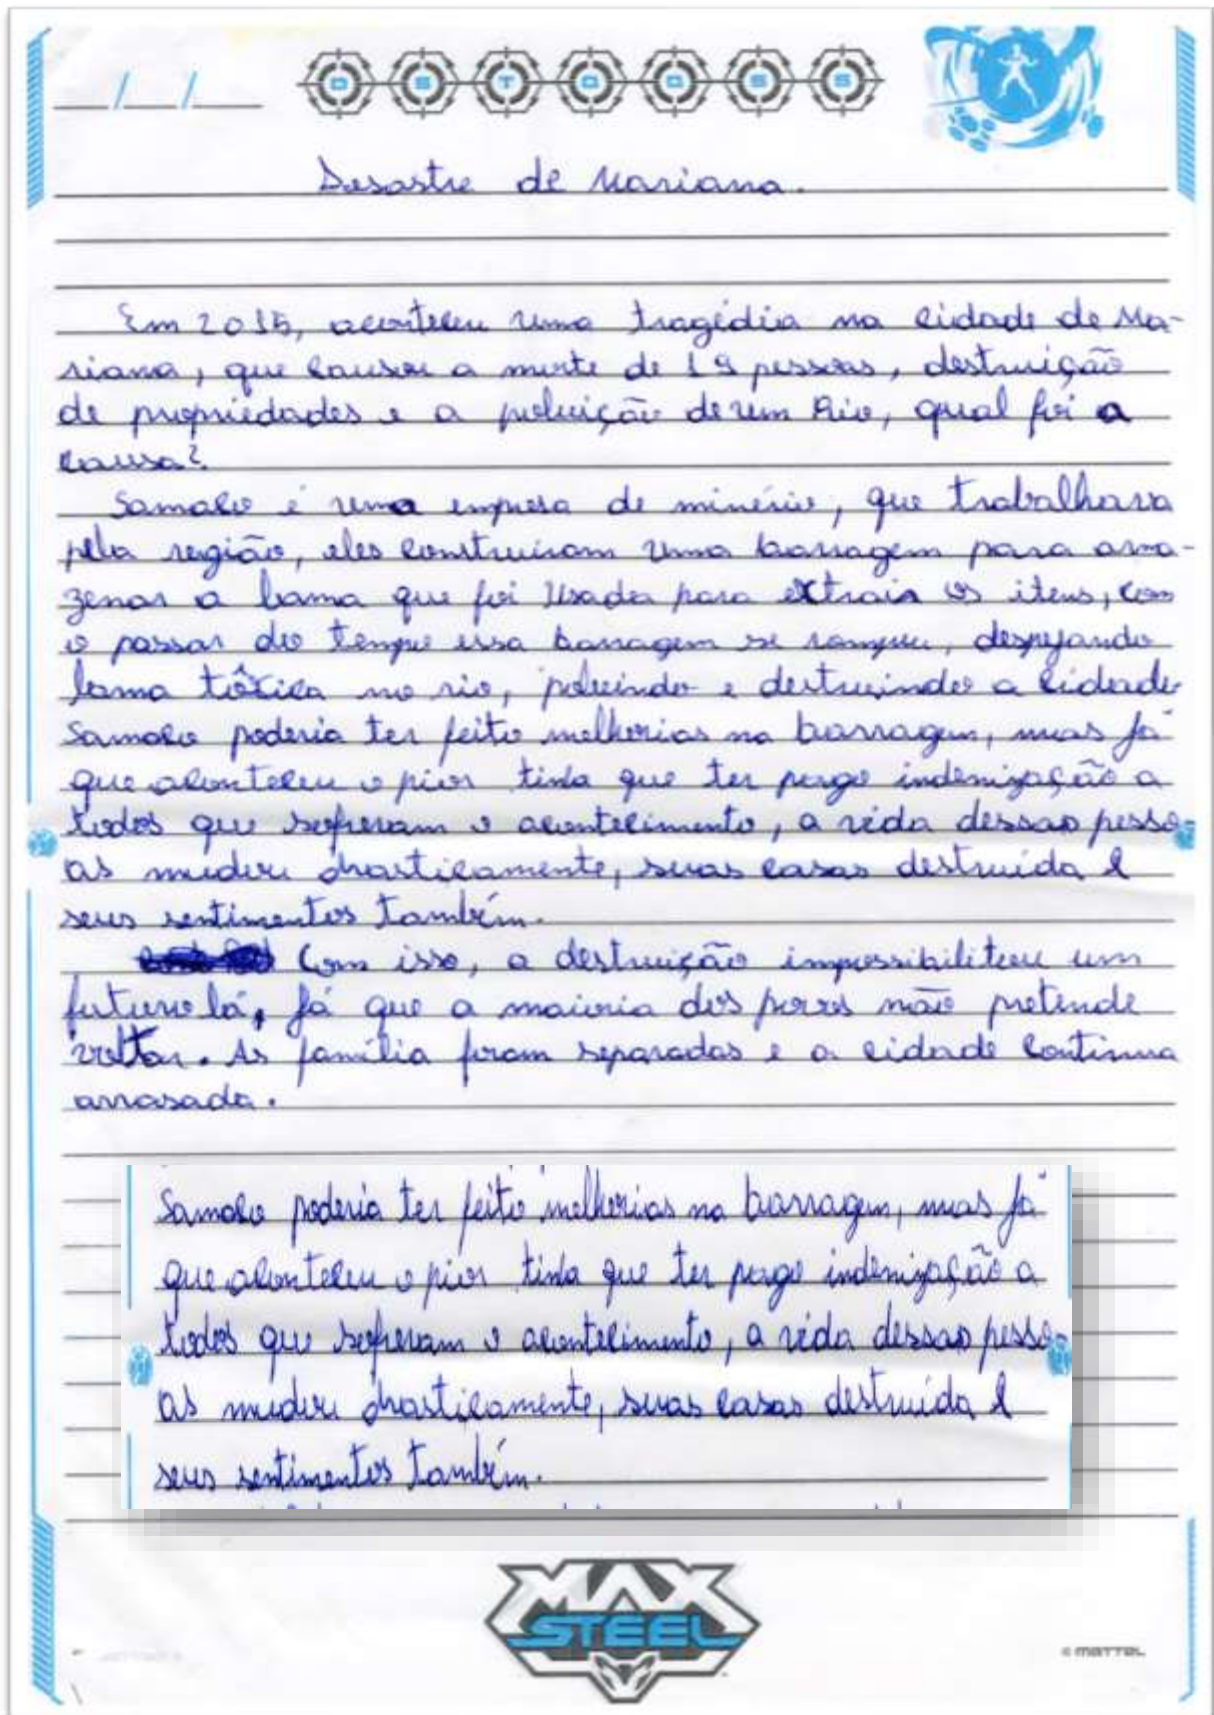 D S T Q Q S S
Desastre de Mariana.
Em 2015, aconteceu uma tragédia na cidade de Ma-
riana, que causou a morte de 19 pessoas, destruição
de propriedades e a poluição de um Rio, qual foi a
causa?
Samaco é uma empresa de minério, que trabalhava
pela região, eles construiram uma barragem para arma-
zenar a lama que foi usada para extrair os itens, com
o passar do tempo essa barragem se rompeu, despejando
lama tóxica no rio, poluindo e destruindo a cidade.
Samaco poderia ter feito melhorias na barragem, mas já
que aconteceu o pior tinha que ter pago indenização a
todos que sofreram o acontecimento, a vida dessas pesso-
as mudou drasticamente, suas casas destruída e
seus sentimentos também.
Com isso, a destruição impossibilitou um
futuro lá, já que a maioria dos povos não pretende
voltar. As família foram separadas e a cidade continua
arrasada.
Samaco poderia ter feito melhorias na barragem, mas já
que aconteceu o pior tinha que ter pago indenização a
todos que sofreram o acontecimento, a vida dessas pesso-
as mudou drasticamente, suas casas destruída e
seus sentimentos também.
MAX
STEEL
© MATTEL